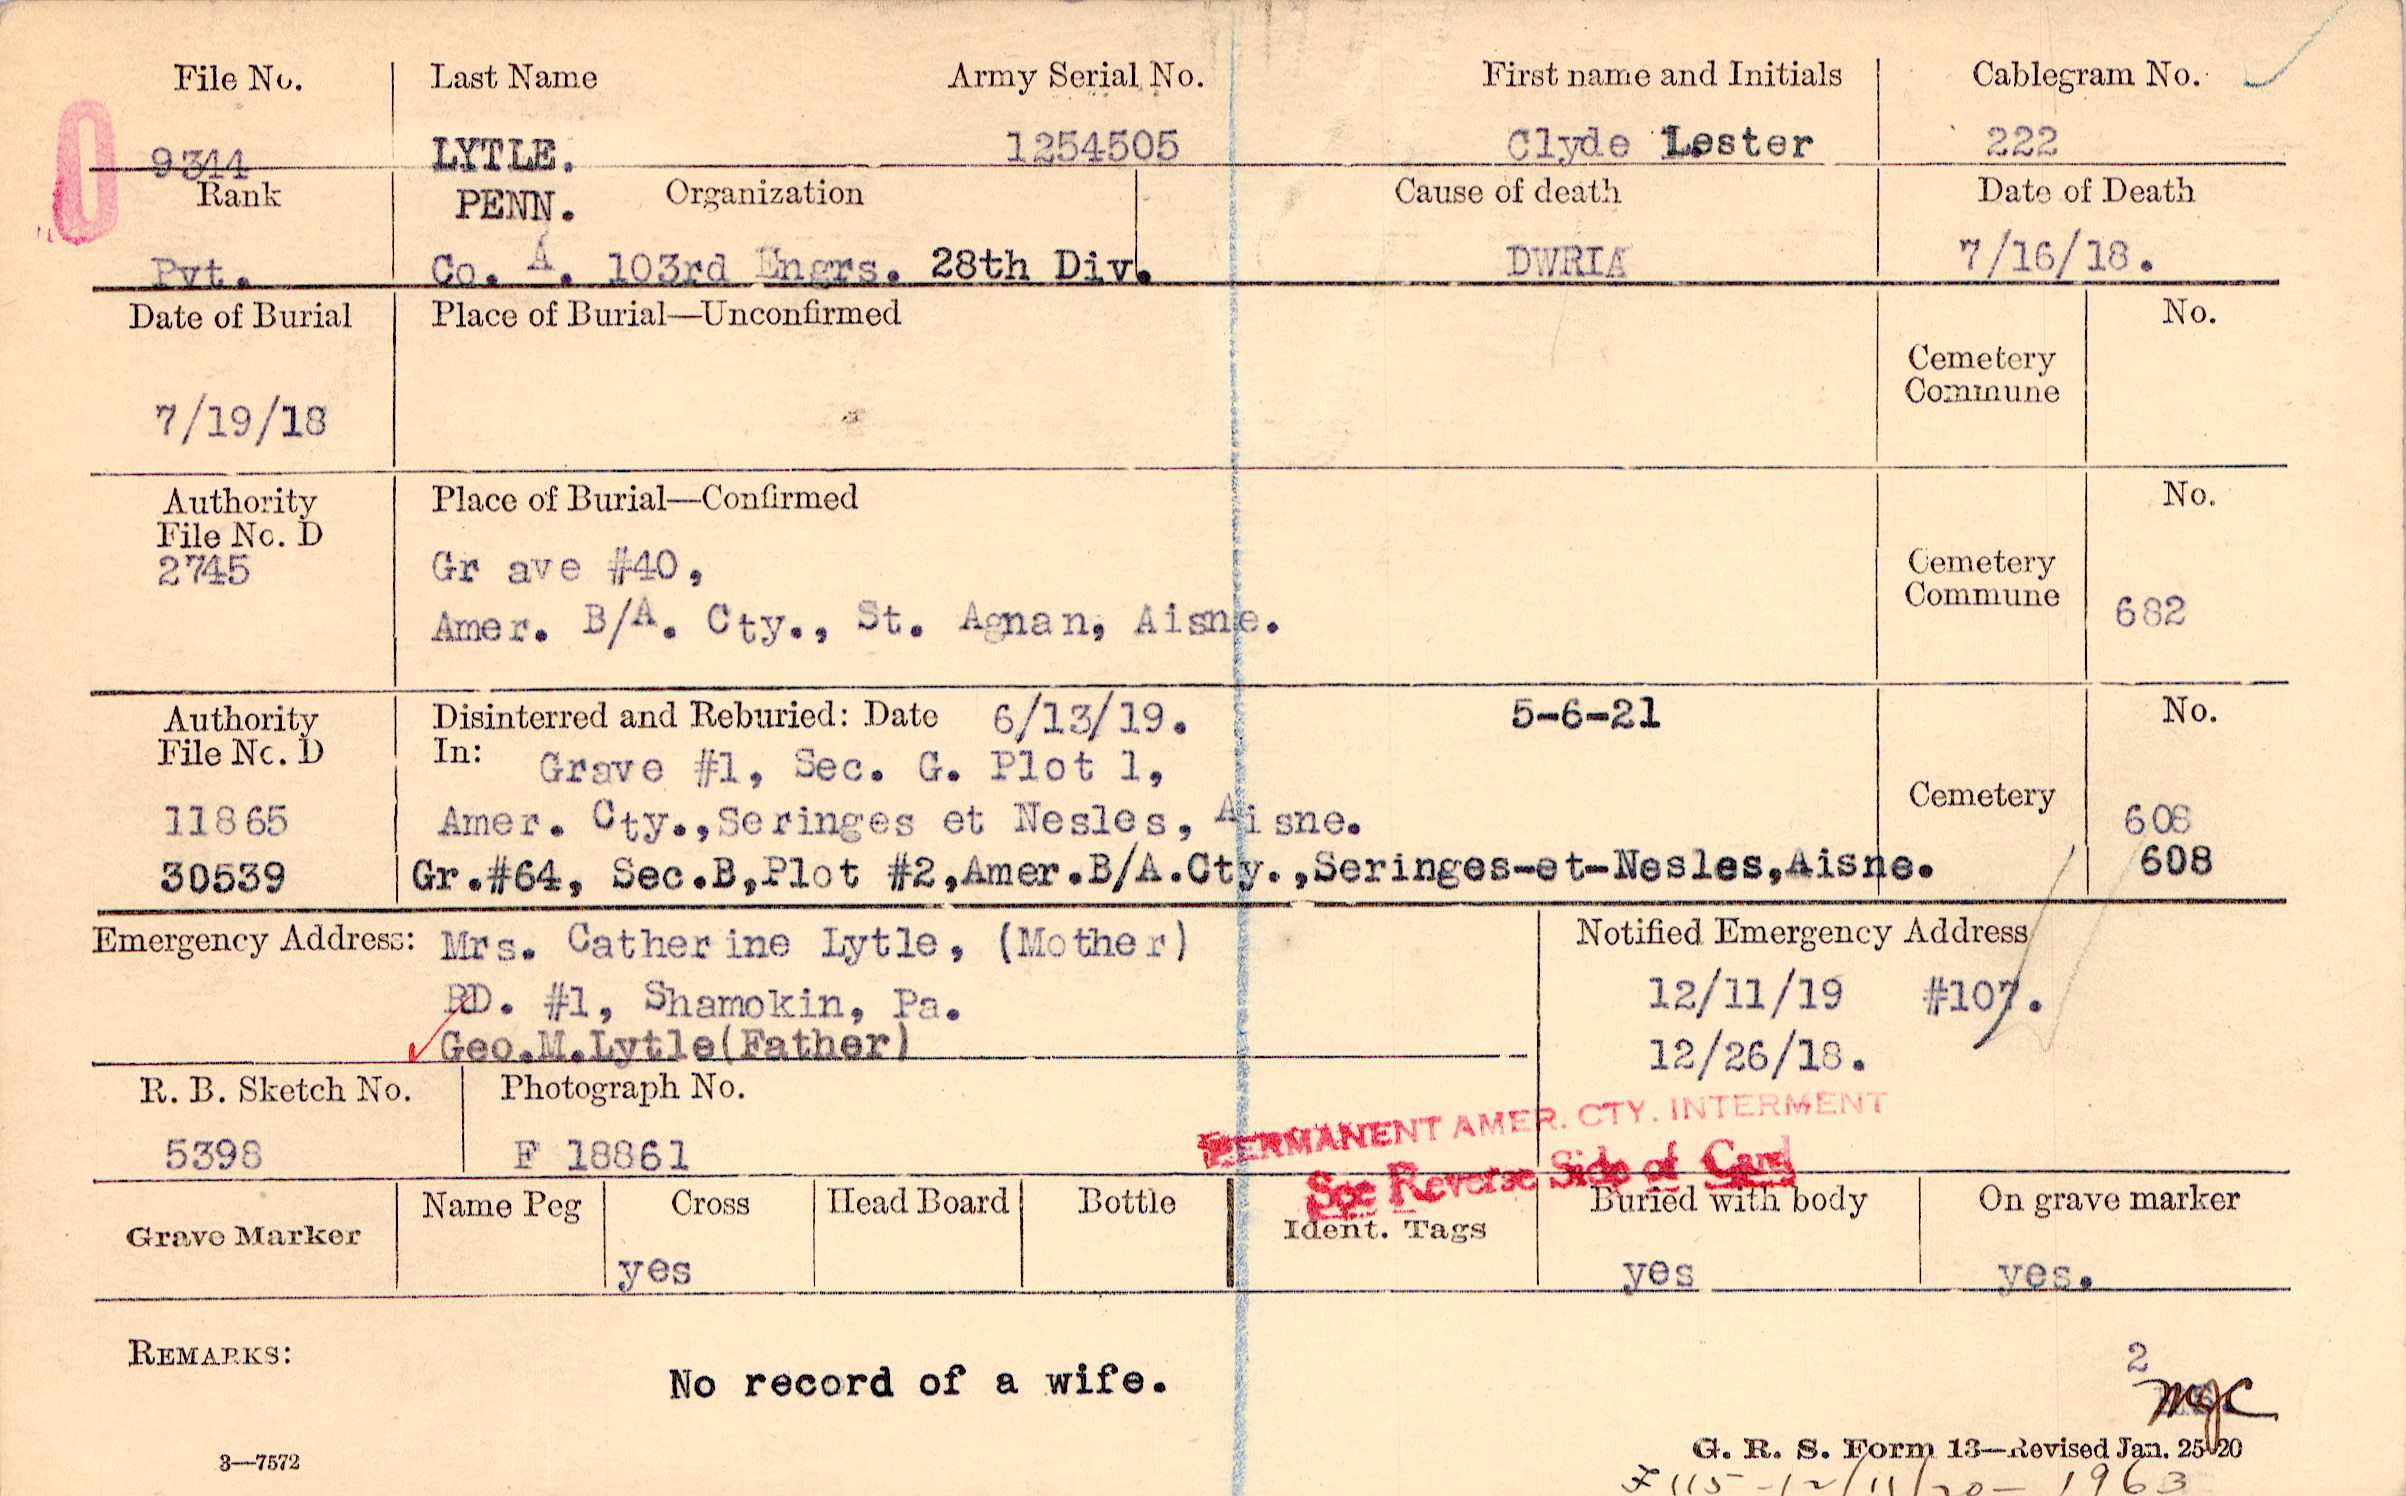 File No. Last Name Army Serial No. First name and Initials Cablegram No.
9344 LYTLE. 1254505 Clyde Lester 222
Rank PENN. Organization Cause of death Date of Death
Pvt. Co. A. 103rd Engrs. 28th Div. DWRIA 7/16/18.
Date of Burial Place of Burial—Unconfirmed No.
Cemetery
Commune
7/19/18
Authority Place of Burial—Confirmed No.
File No. D
2745 Gr ave #40, Cemetery
Commune 682
Amer. B/A. Cty., St. Agnan, Aisne.
Authority Disinterred and Reburied: Date 6/13/19. 5-6-21 No.
File No. D In: Grave #1, Sec. G. Plot 1,
Cemetery
11865 Amer. Cty.,Seringes et Nesles, Aisne. 608
30539 Gr.#64, Sec.B,Plot #2,Amer.B/A.Cty.,Seringes-et-Nesles,Aisne. 608
Emergency Address: Mrs. Catherine Lytle, (Mother) Notified Emergency Address
RD. #1, Shamokin, Pa. 12/11/19 #107.
Geo.M.Lytle(Father) 12/26/18.
R. B. Sketch No. Photograph No.
PERMANENT AMER. CTY. INTERMENT
5398 F 18861
See Reverse Side of Card
Grave Marker Name Peg Cross Head Board Bottle Ident. Tags Buried with body On grave marker
yes yes yes.
REMARKS: 2
No record of a wife. MJC
3—7572 G. R. S. Form 13—Revised Jan. 25-20
115-12/11/20-1963